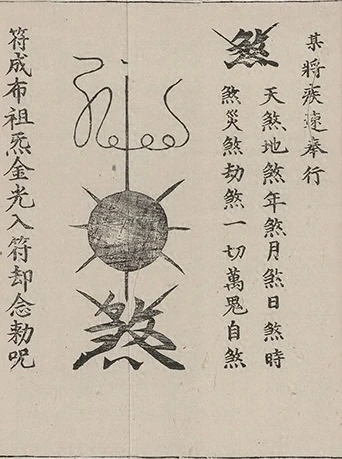 某將疾速奉行
天煞地煞年煞月煞日煞時
煞災煞劫煞一切萬鬼自煞
煞
煞
符成布祖炁金光入符却念勅呪